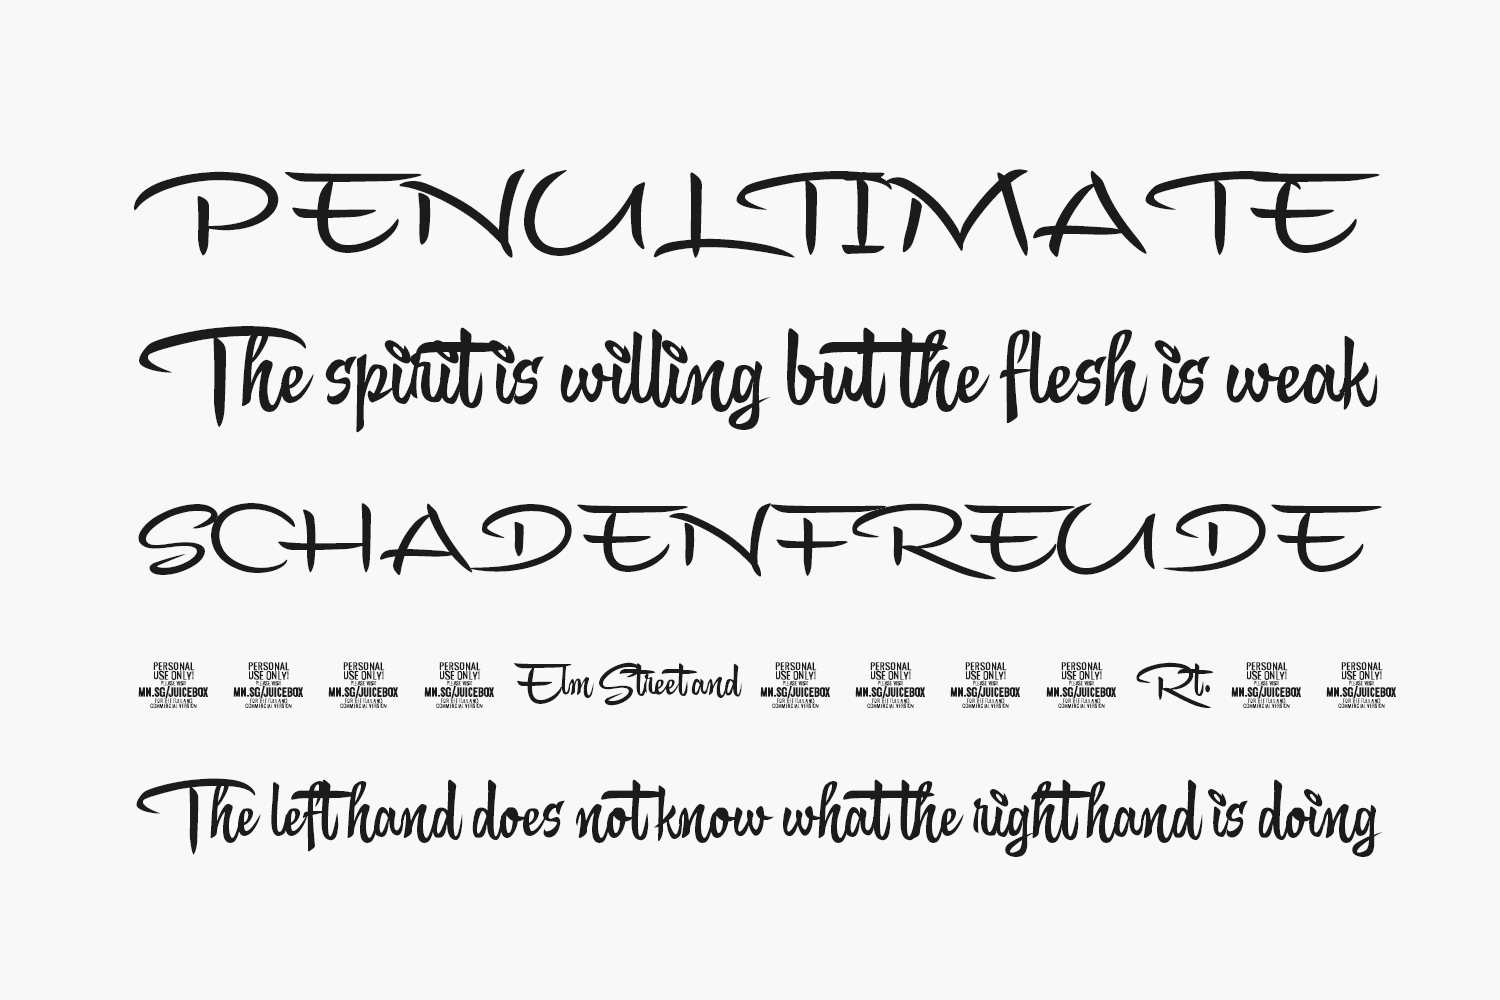 PENULTIMATE
The spirit is willing but the flesh is weak
SCHADENFREUDE
PERSONAL USE ONLY! PLEASE VISIT MN.SG/JUICEBOX FOR THE FULL AND COMMERCIAL VERSION PERSONAL USE ONLY! PLEASE VISIT MN.SG/JUICEBOX FOR THE FULL AND COMMERCIAL VERSION PERSONAL USE ONLY! PLEASE VISIT MN.SG/JUICEBOX FOR THE FULL AND COMMERCIAL VERSION PERSONAL USE ONLY! PLEASE VISIT MN.SG/JUICEBOX FOR THE FULL AND COMMERCIAL VERSION Elm Street and PERSONAL USE ONLY! PLEASE VISIT MN.SG/JUICEBOX FOR THE FULL AND COMMERCIAL VERSION PERSONAL USE ONLY! PLEASE VISIT MN.SG/JUICEBOX FOR THE FULL AND COMMERCIAL VERSION PERSONAL USE ONLY! PLEASE VISIT MN.SG/JUICEBOX FOR THE FULL AND COMMERCIAL VERSION PERSONAL USE ONLY! PLEASE VISIT MN.SG/JUICEBOX FOR THE FULL AND COMMERCIAL VERSION Rt. PERSONAL USE ONLY! PLEASE VISIT MN.SG/JUICEBOX FOR THE FULL AND COMMERCIAL VERSION PERSONAL USE ONLY! PLEASE VISIT MN.SG/JUICEBOX FOR THE FULL AND COMMERCIAL VERSION
The left hand does not know what the right hand is doing